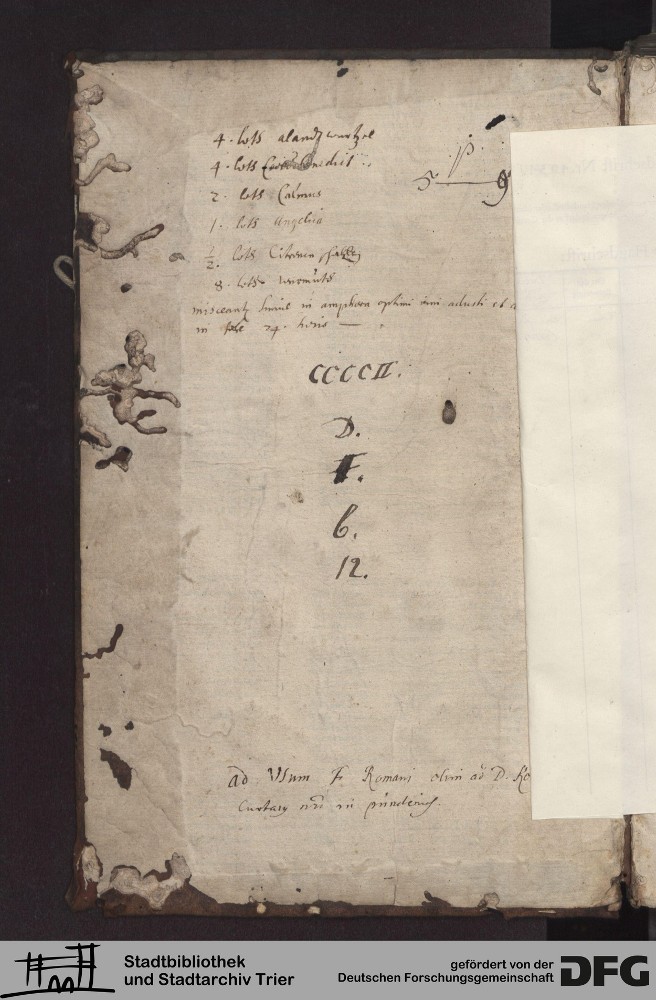 4. lots alandtwurtzel
4. lots
2. lots Calmus
1. lots Angelica
½. lots Citronen
8. lots wermuts
misceantur simul in amphora optimi vini adusti et
in 24. horis —
p.
5 — 9
CCCCII.
D.
F.
6.
12.
ad Usum F. Romani olim ad D.
in pünderich.
Stadtbibliothek
und Stadtarchiv Trier
gefördert von der
Deutschen Forschungsgemeinschaft
DFG